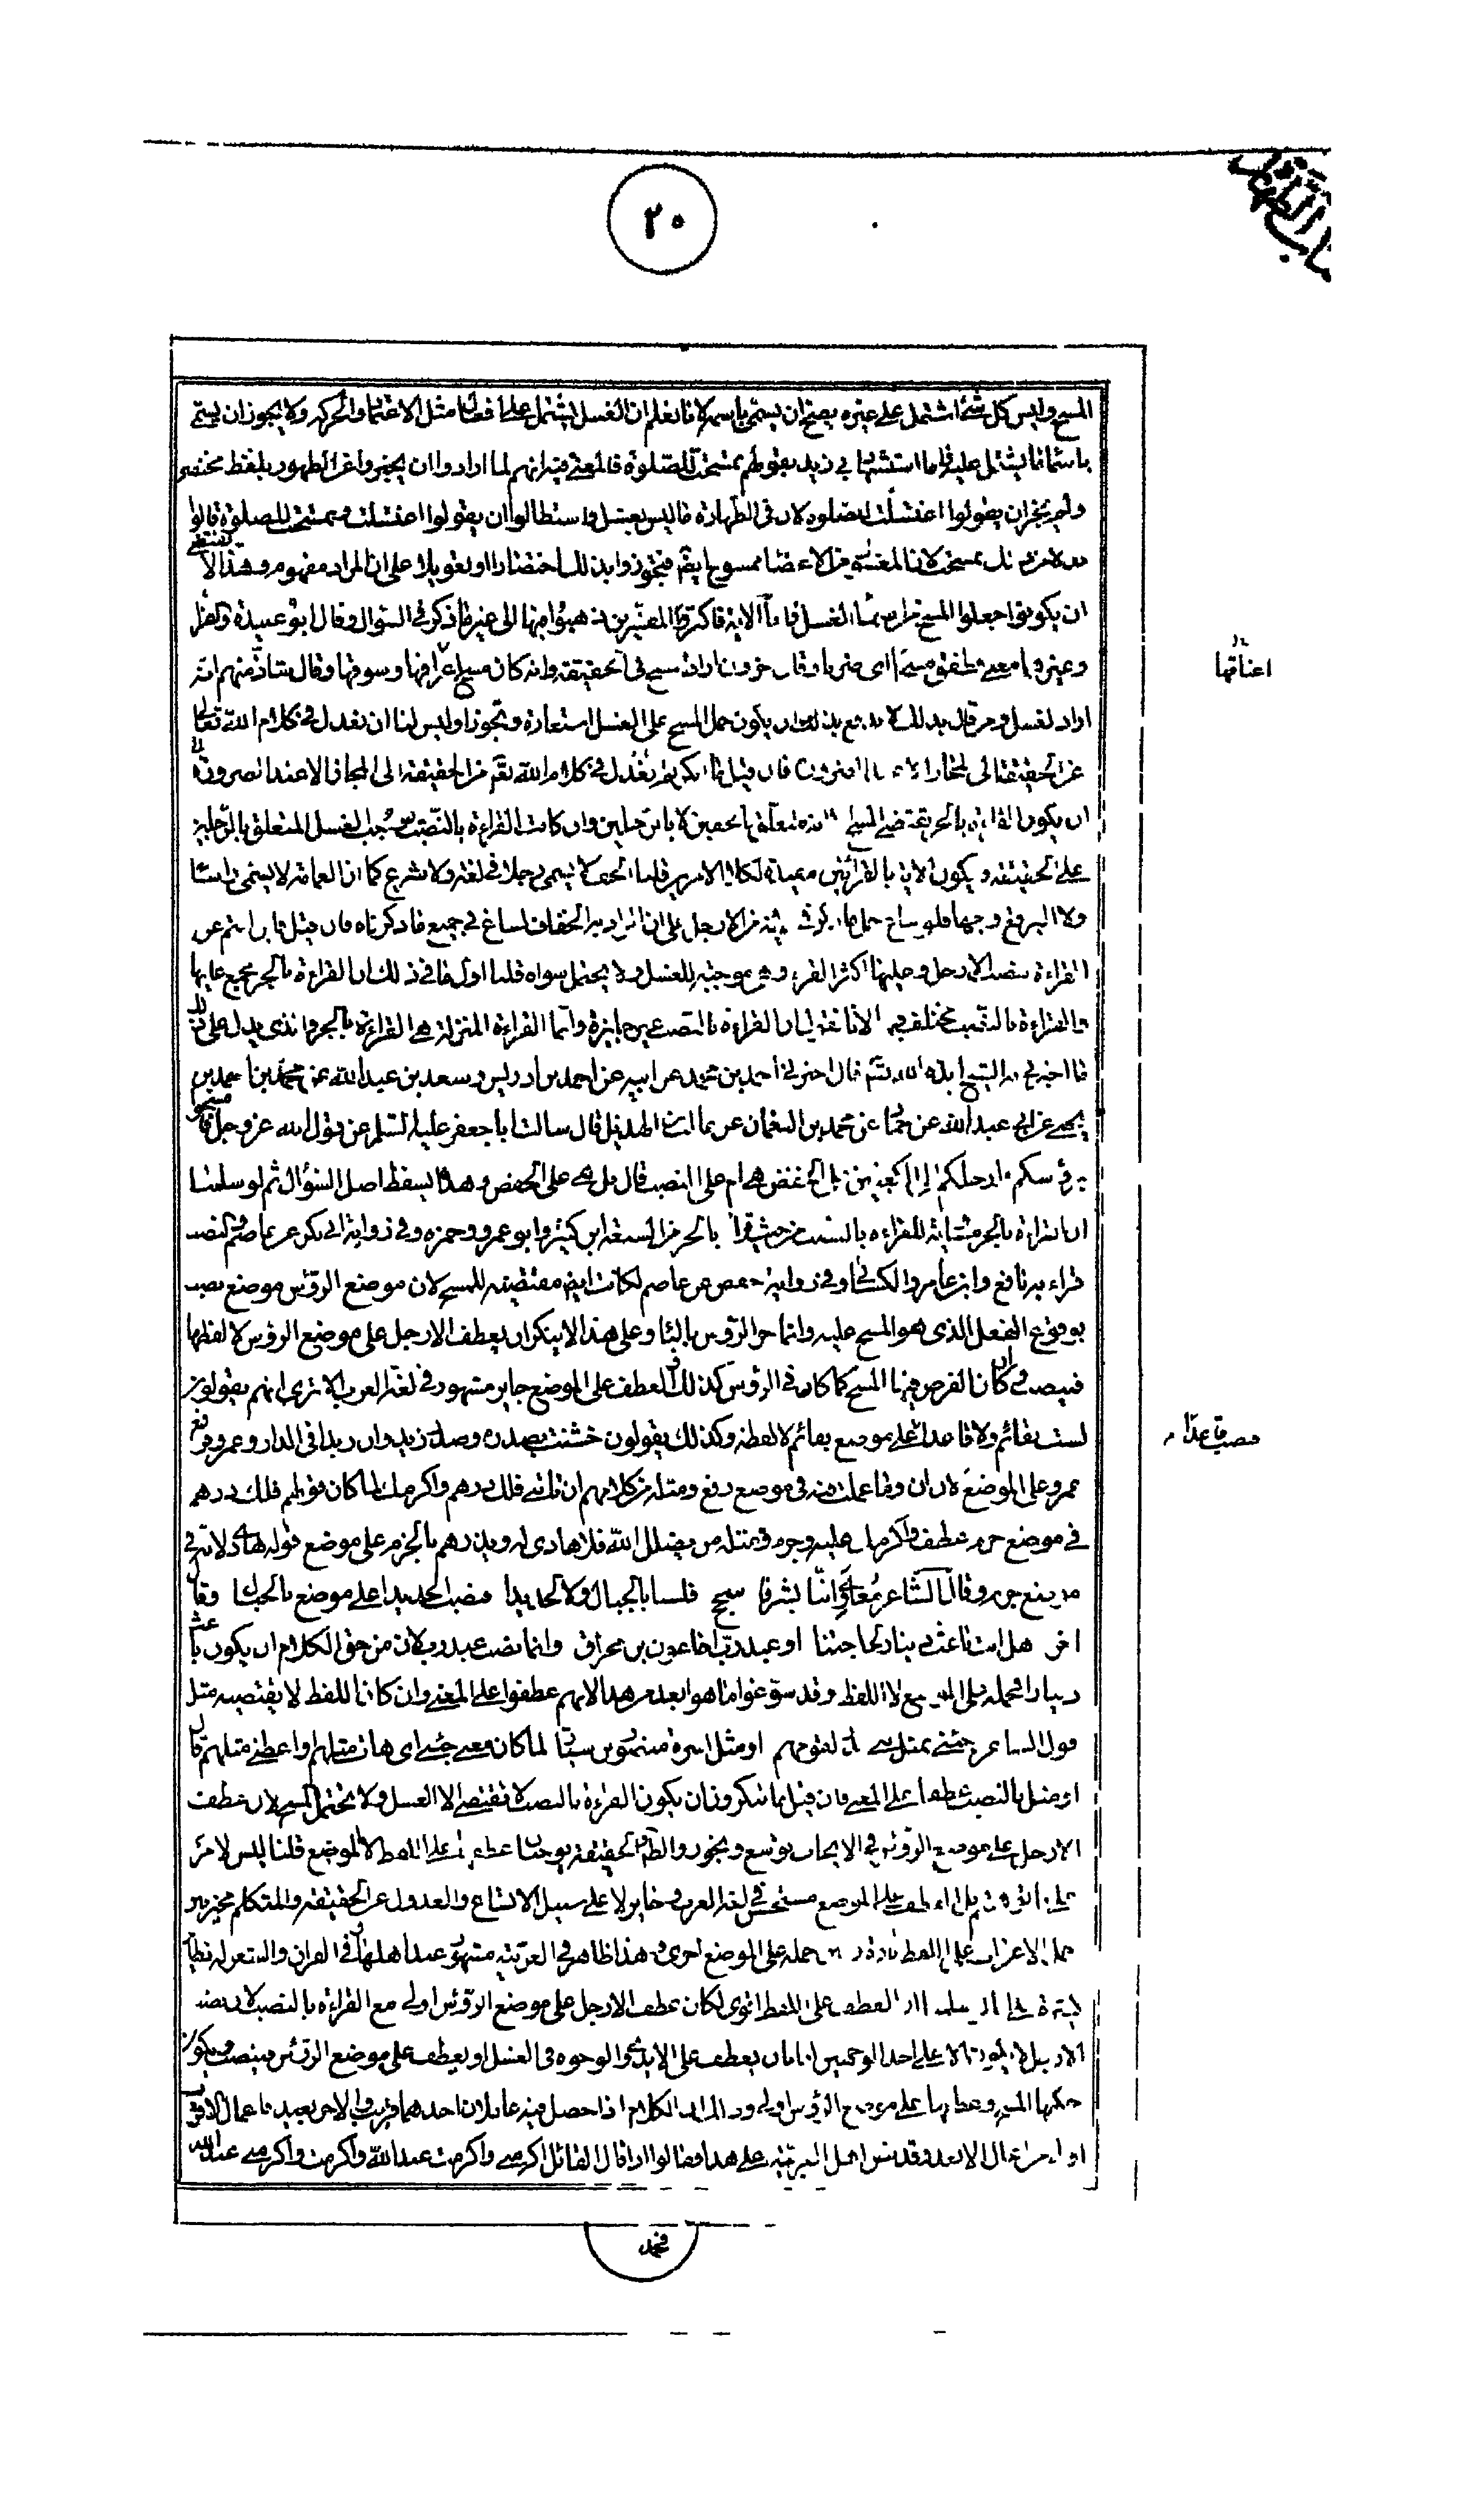 ٢٠
المسح وليس كل شئ اشتمل على غيره يصح ان يسمى باسمه لانا نعلم ان الغسل يشتمل على افعال مثل الاعتماد والحركه ولا يجوز ان يسمى
باسم ما يشتمل عليه فاما استشهاد ابي زيد بقولهم تمسحت للصلوة فالمعنى فيه انهم لما ارادوا ان يخبروا عن الطهور بلفظ مختصر
ولم يجز ان يقولوا اغتسلت للصلوه لان في الطهارة ما ليس بغسل واستطالوا ان يقولوا اغتسلت وتمسحت للصلوة قالوا
بدلا من ذلك تمسحت لان المغسول من الاعضا ممسوح ايضا فتجوزوا بذلك اختصارا وتعويلا على ان المراد مفهوم وهذا لا يقتضى
ان يكونوا جعلوا المسح من اسماء الغسل فاما الاية فاكثر المفسرين ذهبوا فيها الى غير ما ذكر في السؤال وقال ابو عبيدة والفرا
وغيرهما معنى فطفق مسحا اى ضربا وقال اخرون اراد المسح في الحقيقة وانه كان مسح اعرافها وسوقها وقال شاذ منهم انه
اعناقها
اراد الغسل ومن قال بذلك لا يدفع ان يكون حمل المسح على الغسل استعارة وتجوزا وليس لنا ان نعدل في كلام الله تعالى
عن الحقيقة الى المجاز الا عند الضرورة فان قيل ما انكرتم ان نعدل في كلام الله تعالى من الحقيقة الى المجاز الا عند الضرورة
ان يكون القراءة بالجر تقتضى المسح الا انه متعلق بالخفين لا بالرجلين وان كانت القراءة بالنصب توجب الغسل المتعلق بالرجلين
على الحقيقة ويكون الاية بالقرائتين مفيدة لكلا الامرين قلنا الخف لا يسمى رجلا في لغة ولا شرع كما ان العمامة لا يسمى راسا
ولا البرقع وجها فلو ساغ حمل ما ذكر في الاية من الارجل على ان المراد به الخفاف لساغ في جميع ما ذكرناه فان قيل فاين انتم عن
القراءة بنصب الارجل وعليها اكثر القراء وهي موجبة للغسل ولا يحتمل سواه قلنا اول ما في ذلك ان القراءة بالجر مجمع عليها
والقراءة بالنصب مختلف فيها لانا نقول ان القراءة بالنصب غير جايزة وانما القراءة المنزلة هي القراءة بالجر والذى يدل على ذلك
ما اخبرني به الشيخ ايده الله تعالى قال اخبرني احمد بن محمد عن ابيه عن احمد بن ادريس وسعد بن عبدالله عن محمد بن احمد بن
يحيى عن ابي عبدالله عن حماد عن محمد بن النعمان عن غالب بن الهذيل قال سالت ابا جعفر عليه السلم عن قول الله عز وجل وامسحوا
برؤسكم وارجلكم الى الكعبين على الخفض هي ام على النصب قال بل هي على الخفض وهذا يسقط اصل السؤال ثم لو سلمنا
ان القراءة بالجر مساوية للقراءه بالنصب من حيث قرا بالجر من السبعة ابن كثير وابو عمرو وحمزه وفي رواية ابي بكر عن عاصم والنصب
قراء به نافع وابن عامر والكسائي وفي رواية حفص عن عاصم لكانت ايضا مقتضيه للمسح لان موضع الرؤس موضع نصب
بوقوع الفعل الذى هو المسح عليه وانما جر الرؤس بالباء وعلى هذا لا ينكر ان يعطف الارجل على موضع الرؤس لا لفظها
فينصب وان كان الفرض فيها المسح كما كان في الرؤس كذلك والعطف على الموضع جايز مشهور في لغة العرب الا ترى انهم يقولون
لست بقائم ولا قاعدا على موضع بقائم لا لفظه وكذلك يقولون خشنت بصدره وصدر زيد وان زيدا في الدار وعمرو فرفع
نصب قاعدا
عمرو على الموضع لان ان وما عملت فيه في موضع رفع ومثله من كلامهم ان تاتني فلك درهم واكرمك لما كان قولهم فلك درهم
في موضع جزم عطف واكرمك عليه وجزم ومثله من يضلل الله فلا هادى له ويذرهم بالجزم على موضع قوله فلا هادي لانه في
موضع جزم وقال الشاعر معاوي اننا بشر فاسجح فلسنا بالجبال ولا الحديدا فنصب الحديدا على موضع بالجبال وقال
اخر هل انت باعث دينار لحاجتنا او عبد رب اخا عون بن محراق وانما نصب عبد رب لان من حق الكلام ان يكون باعث
دينارا فحمله على الموضع لا اللفظ وقد سوغوا ما هو ابعد من هذا لانهم عطفوا على المعنى وان كان اللفظ لا يقتضيه مثل
قول الشاعر جئني بمثل بني بدر لقومهم او مثل اسرة منظور بن سيار لما كان معنى جئني اى هات مثلهم واعطني مثلهم قال
او مثل بالنصب عطفا على المعنى فان قيل ما تنكرون ان يكون القراءة بالنصب لا تقتضى الا الغسل ولا تحتمل المسح لان عطف
الارجل على موضع الرؤس في الايجاب توسع وتجوز والظاهر والحقيقة يوجبان عطفها على اللفظ لا الموضع قلنا ليس الامر
على ما توهمتم بل العطف على الموضع مستحسن في لغة العرب وجايز لا على سبيل الاتساع والعدول عن الحقيقة والمتكلم مخير بين
حمل الاعراب على اللفظ تارة وبين حمله على الموضع اخرى وهذا ظاهر في العربية مشهور عند اهلها وفي القران والشعر له نظاير
كثيرة على انا لو سلمنا ان العطف على اللفظ اقوى لكان عطف الارجل على موضع الرؤس اولى مع القراءة بالنصب لان نصب
الارجل لا يكون الا على احد الوجهين اما ان يعطف على الايدى والوجوه في الغسل او يعطف على موضع الرؤس فينصب ويكون
حكمها المسح وعطفها على موضع الرؤس اولى وذلك ان الكلام اذا حصل فيه عاملان احدهما قريب والاخر بعيد فاعمال الاقرب
اولى من اعمال الابعد وقد نص اهل العربية على هذا فقالوا اذا قال القائل اكرمني واكرمت عبدالله واكرمت واكرمني عبدالله
فحمد